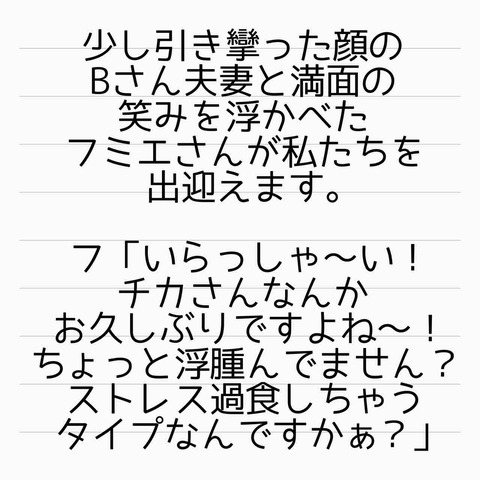 少し引き攣った顔の
Bさん夫妻と満面の
笑みを浮かべた
フミエさんが私たちを
出迎えます。
フ「いらっしゃ〜い！
チカさんなんか
お久しぶりですよね〜！
ちょっと浮腫んでません？
ストレス過食しちゃう
タイプなんですかぁ？」